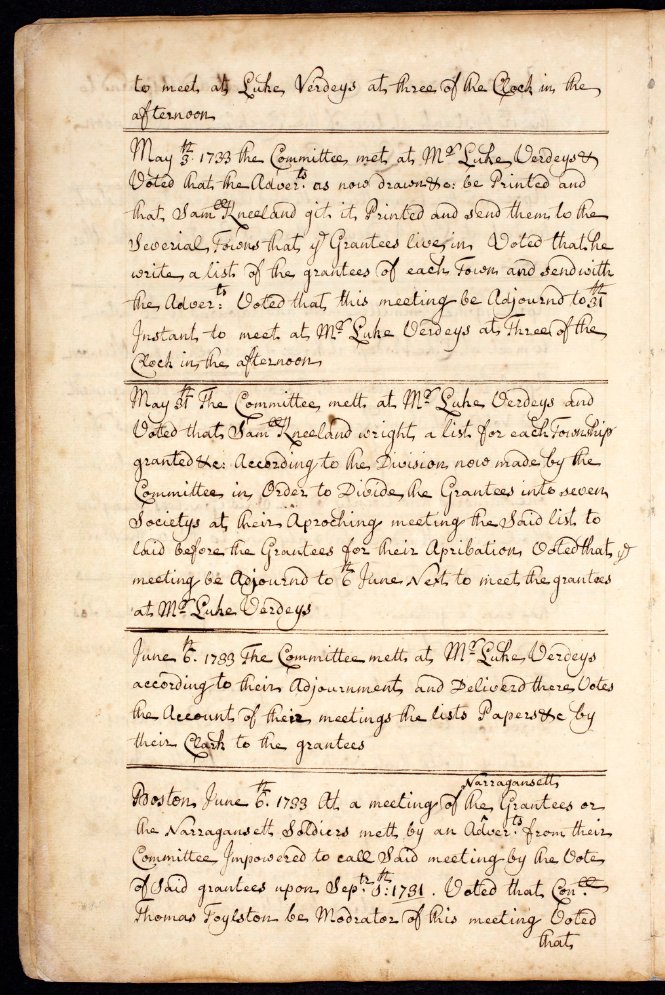 to meet at Luke Verdeys at three of the Clock in the
afternoon
May 3th. 1733 the Committee met at Mr Luke Verdeys &
Voted that the Adverts. as now drawn &c: be Printed and
that Samll Kneeland git it Printed and send them to the
Severial Towns that ye Grantees live in Voted that he
write a list of the grantees of each Town and send with
the Adverts: Voted that this meeting be Adjournd to 31th
Instant to meet at Mr Luke Verdeys at Three of the
Clock in the afternoon
May 31th The Committee mett at Mr Luke Verdeys and
Voted that Samll Kneeland wright a list for each Township
granted &c: According to the Division now made by the
Committee in Order to Divide the Grantees into seven
Societys at their Aproching meeting the Said list to
laid before the Grantees for their Apribation Voted that ye
meeting be Adjournd to 6th June Next to meet the grantees
at Mr Luke Verdeys
June 6th. 1733 The Committee mett at Mr Luke Verdeys
according to their Adjournment and Deliverd there Votes
the Account of their meetings the lists Papers &c by
their Clark to the grantees
Boston June 6th. 1733 At a meeting of the Narragansett Grantees or
the Narragansett Soldiers mett by an Adverts. from their
Committee Impowered to call Said meeting by the Vote
of Said grantees upon Septr 5th: 1731. Voted that Conll
Thomas Foylston be Modrator of this meeting Voted
that